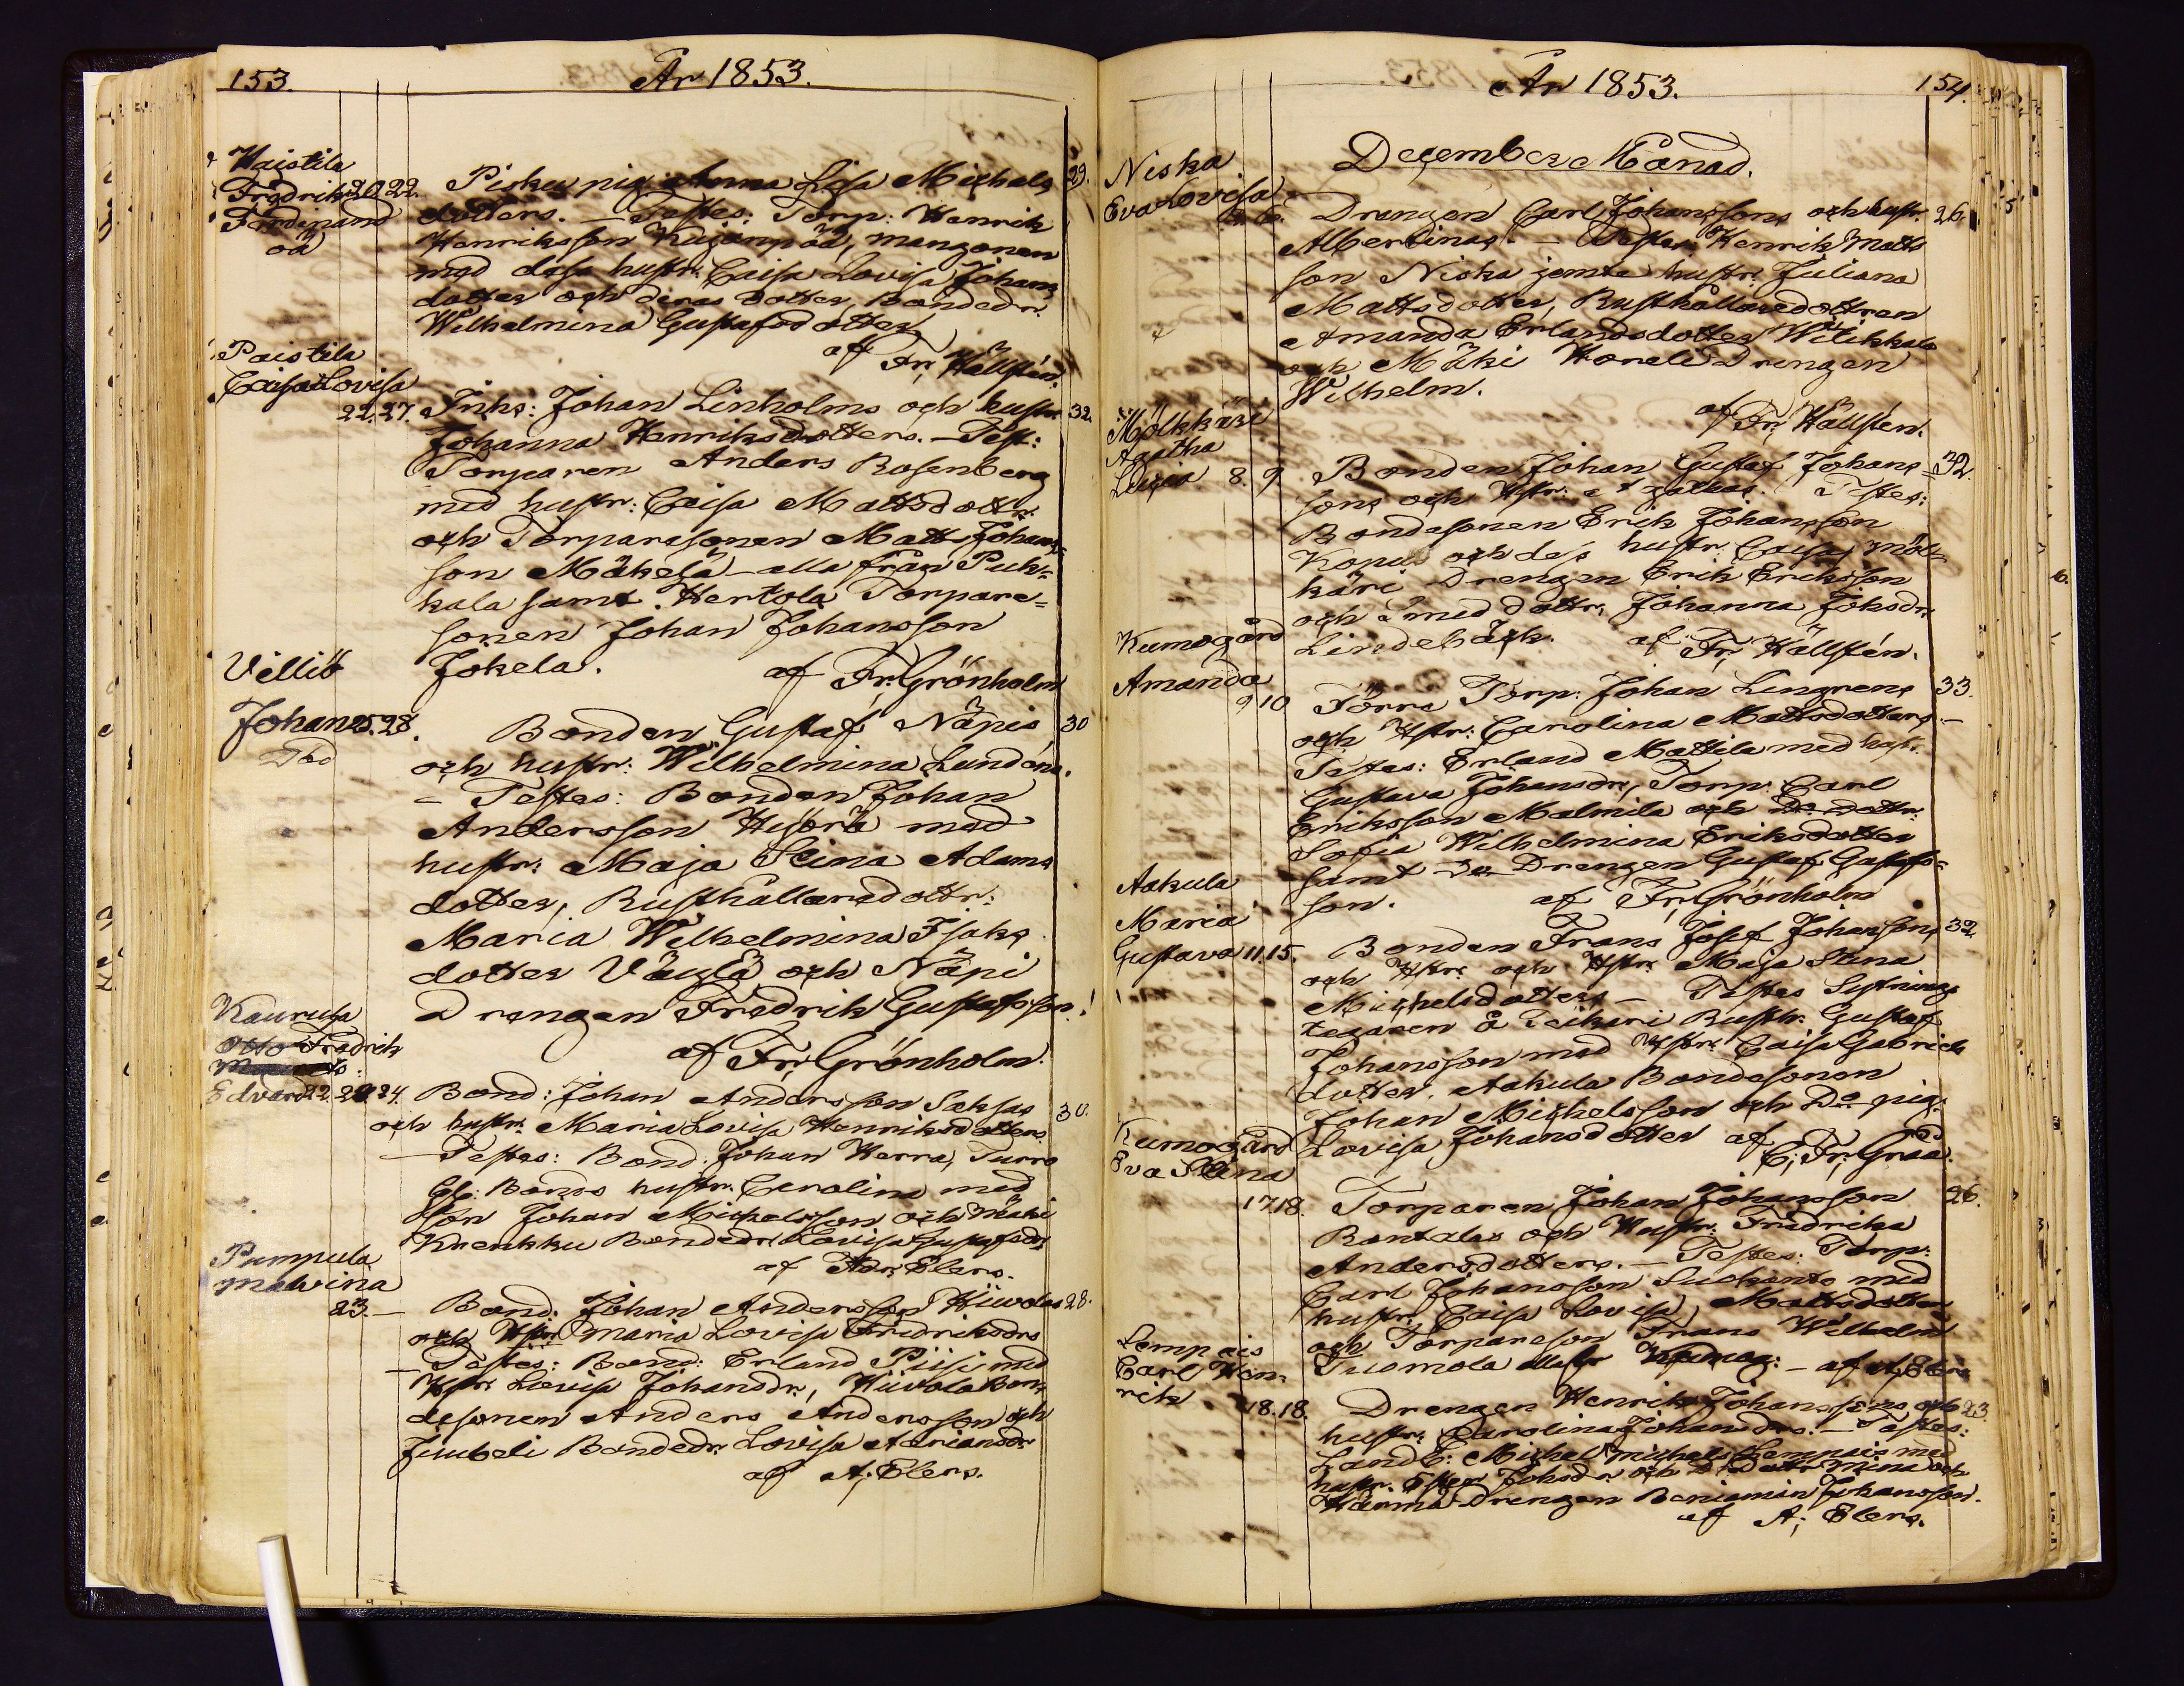 153.
År 1853.
Haistila
Fredrik 20. 22.
Ferdinand
oä
Pisku pig: Anna Lisa Michels 29.
dotters. – Testes: Torp: Henrik
Henriksson Kujanpää, mangonen
med dess hustr: Caisa Lovisa Johans
dotter och deras dotter, Bondedr.
Wilhelmina Gustafsdotter
af Fr. Hällstén.
Paistila
Caisa Lovisa
22. 27. Inhs: Johan Linholms och hustr 32.
Johanna Henriksdotters. – Test:
Torparen Anders Rosenberg
med hustr: Caisa Mattsdottr
och Torparesonen Matts Johans=
son Mäkelä – alla från Puh=
kala samt Hertola Torpare=
sonen Johan Johansson
Jokela. af Fr. Grönholm
Villiö
Johan 25. 28.
Bonden Gustaf Näpis 30
och hustr: Wilhelmina Lundéns.
– Testes: Bonden Johan
Andersson Hesorö med
hustr: Maja Stina Adams
dotter, Rusthållaredottr:
Maria Wilhelmina Isaks
dotter Väulä och Näpi
Drengen Fredrik Gustafsson!
af Fr. Grönholm.
Kaurusa
Otto Fredrik
Edvard 22. 24. Bond: Johan Andersson Saksas 30.
och hustr. Maria Lovisa Henriksdotters
– Testes: Bond. Johan Herra, Turra
Gl: Bonds hustr. Carolina med
son Johan Michelsson och Mäki
Knenkku Bondedr. Lovisa Gustafsdr
af Adr. Elers.
Pumpula
Malvina
23. – Bond: Johan Andersson Hiivolas 28.
och Hstr Maria Lovisa Fredriksdrs
– Testes: Bond: Erland Piisi med
Hstr. Lovisa Johansdr, Hiivola Bon
desonen Anders Andersson och
Junbeli Bondedr. Lovisa Adriansdr
af A. Elers.
År 1853.
154.
December Månad.
Niska
Eva Lovisa
Drengen Carl Johanssons och hustr. 26.
Albertinas. – Testes: Henrik Matts
son Niska jemte hustr: Juliana
Mattsdotter, Rusthållaredottren
Amanda Erlandsdotter Wilikkala
och Mäki Honeli Drengen
Wilhelm.
af Fr. Hällstén.
Mölkkäri
Agatha
Lucia 8. 9. Bonden Johan Gustaf Johans= 32.
sons och Hstr: Agathas. Testes:
Bondesonen Erik Johansson
Kopu och dess hustr. Caisa, Möl
käri Drengen Erik Eriksson
och med dottr. Johanna Johsdr
Lindebäck. af Fr. Hällstén.
Kumogård
Amanda
9 10 Förra Torp: Johan Lingrens 33.
och Hstr: Carolina Mattsdotters. –
Testes: Erland Mattila med hustr.
Gustava Johansdr, Torp. Carl
Eriksson Malmila och Do dottr.
Sofia Wilhelmina Eriksdotter
samt Do Drengen Gustaf Gustafs=
son. af Fr. Grönholm
Aakula
Maria
Gustava 11. 15. Bonden Frans Josef Johanssons 32.
och Hstr. och Hstr. Maja Stina
Michelsdotters – Testes Sytnings
tagaren å Leikari Rusth. Gustaf
Johansson med Hstr. Caisa Gabriels
dotter. Aakula Bondesonen
Johan Michelsson och Do pig.
Lovisa Johansdotter af
C. Fr. Graa.
Kumogård
Eva Stina
17. 18. Torparen Johan Johansson 26.
Rantalas och Hustr. Fredrika
Andersdotters. – Testes: Torp:
Carl Johansson Suckanto med
hustr. Caisa Lovisa Mattsdotter
och Torpareson Frans Wilhelm
Tuomola alla fr Kumog: – af A. Elers
Lempais
Carl Hen
rik 18. 18. Drengen Henrik Johanssons och 23.
hustr: Carolina Johansdrs. – Testes:
Landb: Michel Michels. Lempais med
hustr. Ester Johsdr och D:o Dottr Mina och
Härmä Drengen Benjamin Johansson.
af A; Elers.